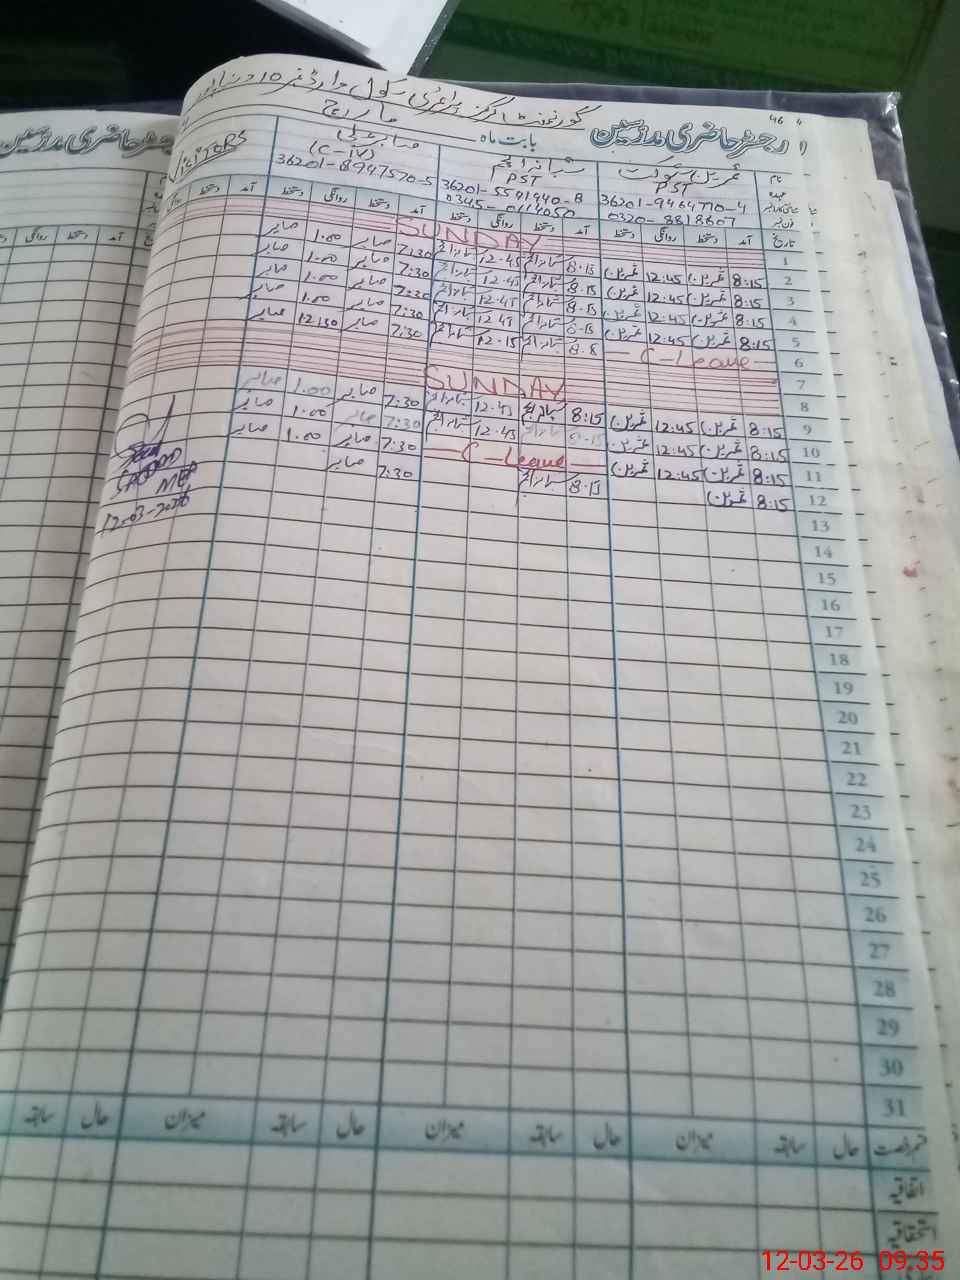 46
گورنمنٹ ماڈل پرائمری سکول وارڈ نمبر 10 دنیاپور
رجسٹر حاضری مدرسین بابت ماہ مارچ
نام ثمرین شوکت شہناز انجم صابر علی VISITORS
عہدہ PST PST (C-IV)
36201-9464710-4 36201-5541440-8 36201-8947570-5
0320-8818607 0345-0114050
تاریخ آمد دستخط روانگی دستخط آمد دستخط روانگی دستخط آمد دستخط روانگی دستخط آمد دستخط
1 SUNDAY
2 8:15 ثمرین 12:45 ثمرین 8:15 12:45 7:30 صابر 1:00 صابر
3 8:15 ثمرین 12:45 ثمرین 8:15 12:45 7:30 صابر 1:00 صابر
4 8:15 ثمرین 12:45 ثمرین 8:15 12:45 7:30 صابر 1:00 صابر
5 8:15 ثمرین 12:45 ثمرین 8:15 12:45 7:30 صابر 1:00 صابر
6 C-Leave 12:15 7:30 صابر 12:30 صابر
7
8 SUNDAY
9 8:15 ثمرین 12:45 ثمرین 8:15 12:45 7:30 صابر 1:00 صابر
10 8:15 ثمرین 12:45 ثمرین 8:15 12:45 7:30 صابر 1:00 صابر
11 8:15 ثمرین 12:45 ثمرین C-Leave 7:30 صابر 1:00 صابر
12 8:15 ثمرین 8:15 7:30 صابر
12-03-2026
13
14
15
16
17
18
19
20
21
22
23
24
25
26
27
28
29
30
31
قسم رخصت حال سابقہ میزان حال سابقہ میزان حال سابقہ میزان حال سابقہ
اتفاقیہ
استحقاقیہ
رجسٹر حاضری مدرسین
آمد دستخط روانگی دستخط
12-03-26 09:35